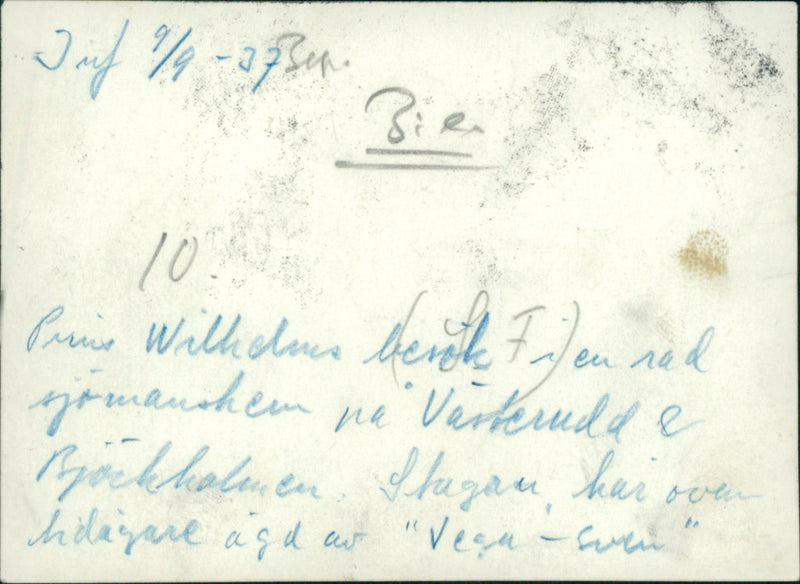 Inf 9/9 - 37
10.
Prins Wilhelms besök i en rad
sjömanshem på Västerudd &
Björkholmen. Stugan, här ovan
tidigare ägd av "Vega-Sven"